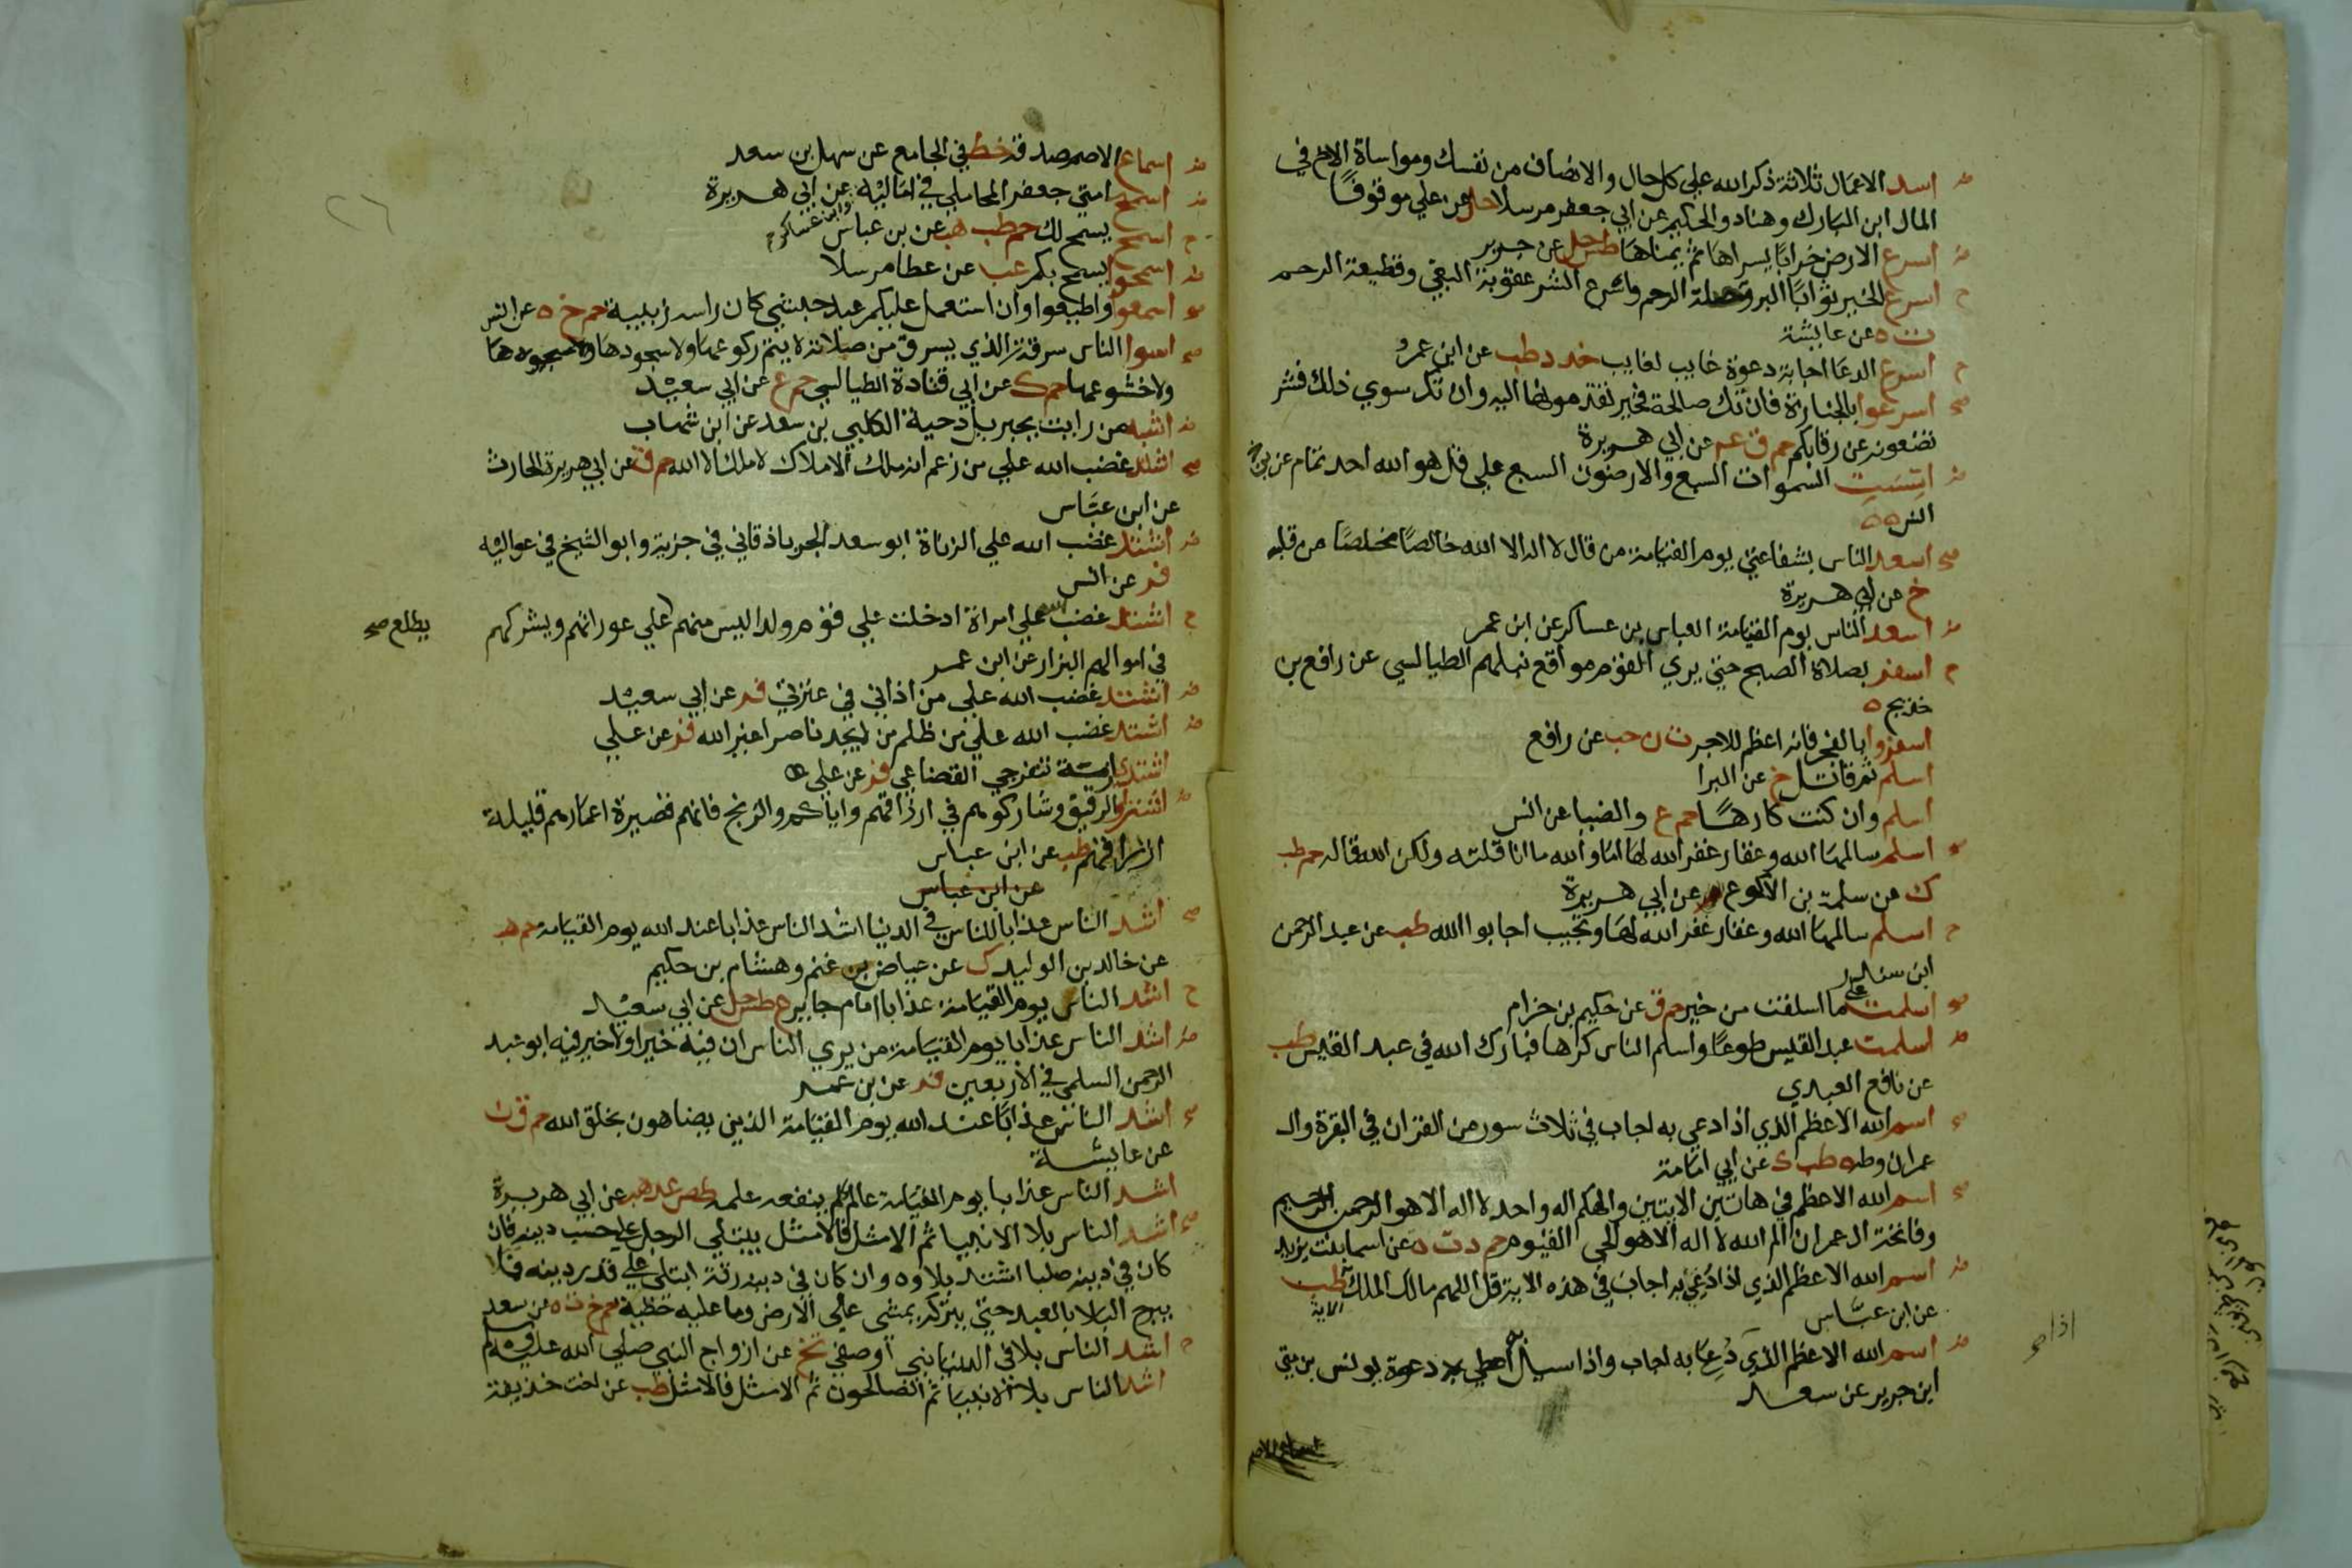 اسد الاعمال ثلاثة ذكر الله على كل حال والانصاف من نفسك ومواساة الاخ في
المال ابن المبارك وهناد والحكيم عن ابي جعفر مرسلا حل عن علي موقوفا
اسرع الارض خرابا يسراها ثم يمناها طس حل عن جرير
اسرع الخير ثوابا البر وصلة الرحم واسرع الشر عقوبة البغي وقطيعة الرحم
ت ه عن عايشة
اسرع الدعا اجابة دعوة غايب لغايب خد د طب عن ابن عمرو
اسرعوا بالجنازة فان تك صالحة فخير تقدمونها اليه وان تك سوي ذلك فشر
تضعونه عن رقابكم حم ق عه عن ابي هريرة
اسست السموات السبع والارضون السبع علي قل هو الله احد تمام عن
انس ه ه
اسعد الناس بشفاعتي يوم القيامة من قال لا اله الا الله خالصا مخلصا من قلبه
خ عن ابي هريرة
اسعد الناس يوم القيامة العباس بن عساكر عن ابن عمر
اسفر بصلاة الصبح حتي يري القوم مواقع نبلهم الطيالسي عن رافع بن
خديج ه
اسفروا بالفجر فانه اعظم للاجر ت ن حب عن رافع
اسلم ثم قاتل خ عن البرا
اسلم وان كنت كارها حم ع والضيا عن انس
اسلم سالمها الله وغفار غفر الله لها اما والله ما انا قلته ولكن الله قاله حم طب
ك عن سلمة بن الاكوع م عن ابي هريرة
اسلم سالمها الله وغفار غفر الله لها وتجيب اجابوا الله طب عن عبد الرحمن
ابن سندر
اسلمت علي ما اسلفت من خير حم ق عن حكيم بن حزام
اسلمت عبد القيس طوعا واسلم الناس كرها فبارك الله في عبد القيس طب
عن نافع العبدي
اسم الله الاعظم الذي اذا دعي به اجاب في ثلاث سور من القران في البقرة وال
عمران وطه ه طب ك عن ابي امامة
اسم الله الاعظم في هاتين الايتين والهكم اله واحد لا اله الا هو الرحمن الرحيم
وفاتحة ال عمران الم الله لا اله الا هو الحي القيوم حم د ت ه عن اسما بنت يزيد
اسم الله الاعظم الذي اذا دعي به اجاب في هذه الاية قل اللهم مالك الملك الاية طب
عن ابن عباس
اسم الله الاعظم الذي دعا به اجاب واذا سيل به اعطي دعوة يونس بن متي
ابن جرير عن سعد
اذا صح
اسماع الاصم
اسماع الاصم صدقة خط في الجامع عن سهل بن سعد
اسمح امتي جعفر المحاملي في اماليه عن ابي هريرة
اسمح يسمح لك حم طب هب عن بن عباس وابن عساكر
اسمحوا يسمح بكم عب عن عطا مرسلا
اسمعوا واطيعوا وان استعمل عليكم عبد حبشي كان راسه زبيبة حم خ ه عن انس
اسوا الناس سرقة الذي يسرق من صلاته لا يتم ركوعها ولا سجودها
ولا خشوعها حم ك عن ابي قتادة الطيالسي حم ع عن ابي سعيد
اشبه من رايت بجبريل دحية الكلبي بن سعد عن ابن شهاب
اشتد غضب الله علي من زعم انه ملك الاملاك لا ملك الا الله حم ق عن ابي هريرة الحارث
عن ابن عباس
اشتد غضب الله علي الزناة ابو سعد الجرباذقاني في جزيه وابو الشيخ في عواليه
فر عن انس
اشتد غضب الله علي امراة ادخلت علي قوم ولدا ليس منهم علي عوراتهم ويشركهم
يطلع صح
في اموالهم البزار عن ابن عمر
اشتد غضب الله علي من اذاني في عترتي فر عن ابي سعيد
اشتد غضب الله علي من ظلم من لا يجد ناصرا غير الله فر عن علي
اشتدي ازمة تنفرجي القضاعي فر عن علي
اشتروا الرقيق وشاركوهم في ارزاقهم واياكم والزنج فانهم قصيرة اعمارهم قليلة
ارزاقهم طب عن ابن عباس
عن ابن عباس
اشد الناس عذابا للناس في الدنيا اشد الناس عذابا عند الله يوم القيامة حم هب
عن خالد بن الوليد ك عن عياض بن غنم وهشام بن حكيم
اشد الناس يوم القيامة عذابا امام جاير ع طس حل عن ابي سعيد
اشد الناس عذابا يوم القيامة من يري الناس ان فيه خيرا ولا خير فيه ابو عبد
الرحمن السلمي في الاربعين فر عن بن عمر
اشد الناس عذابا عند الله يوم القيامة الذين يضاهون بخلق الله حم ق ن
عن عايشة
اشد الناس عذابا يوم القيامة عالم لم ينفعه علمه طص عد هب عن ابي هريرة
اشد الناس بلا الانبيا ثم الامثل فالامثل يبتلي الرجل علي حسب دينه فان
كان في دينه صلبا اشتد بلاوه وان كان في دينه رقة ابتلي علي قدر دينه فما
يبرح البلا بالعبد حتي يتركه يمشي علي الارض وما عليه خطية حم خ ت ه عن سعد
اشد الناس بلا في الدنيا نبي او صفي تخ عن ازواج النبي صلي الله عليه وسلم
اشد الناس بلا الانبيا ثم الصالحون ثم الامثل فالامثل طب عن اخت حذيفة